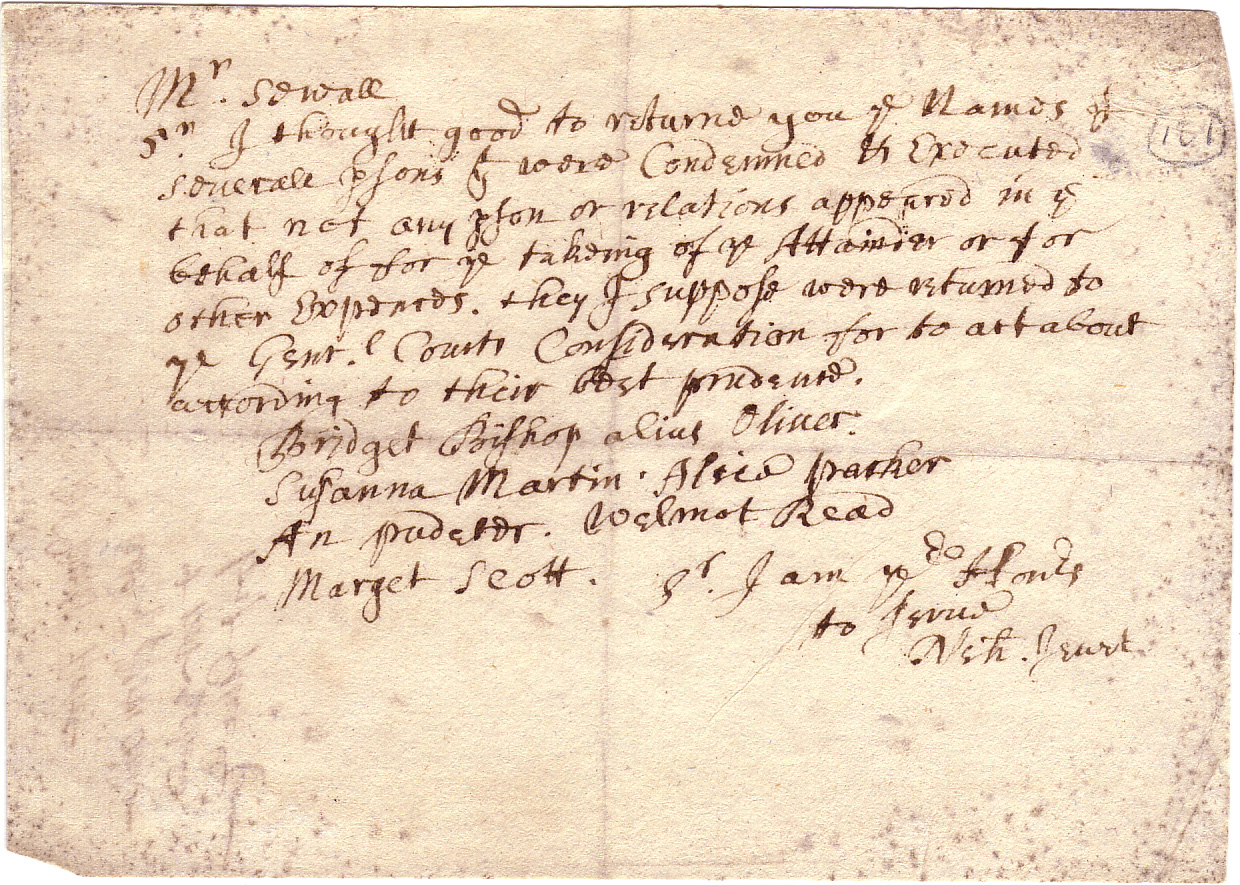 Mr. Sewall
Sr. I thought good to returne you ye Names of
severall psons yt were Condemned & Executed
that not any pson or relations appeared in ye
behalf of for ye takeing of ye Attainder or for
other Expences. they I suppose were returned to
ye Genr.l Courts Consideration for to act about
according to their best prudence.
Bridget Bishop alius Oliver.
Susanna Martin. Alice Parker
An pudeter. Welmot Read
Marget Scott. Sr. I am ye
to serve
Neh. Jewet
181